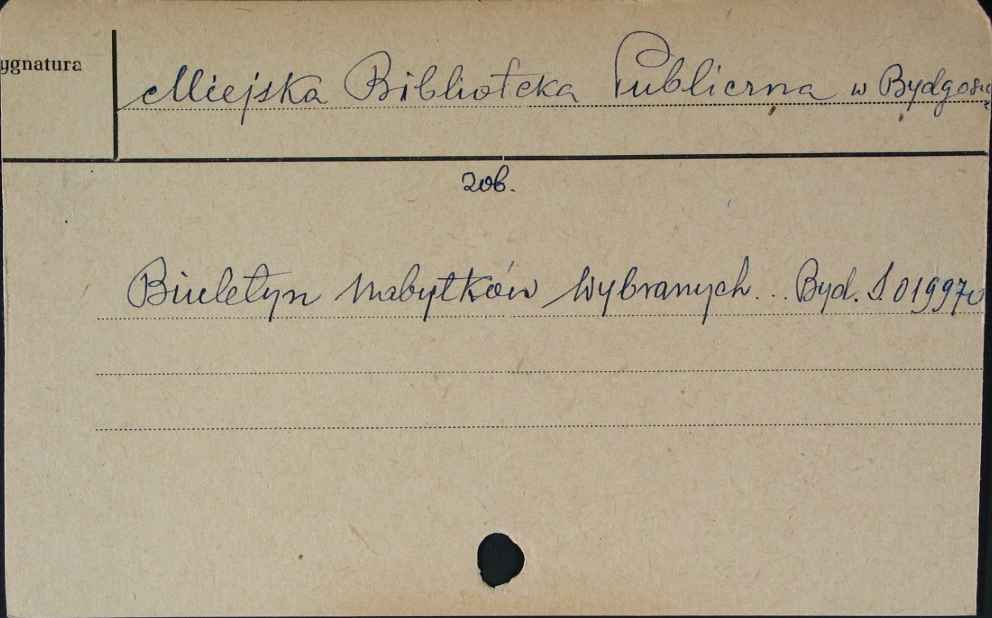 ygnatura
Miejska Biblioteka Publiczna w Bydgoszczy
zob.
Biuletyn Nabytków Wybranych... Byd. S 019970